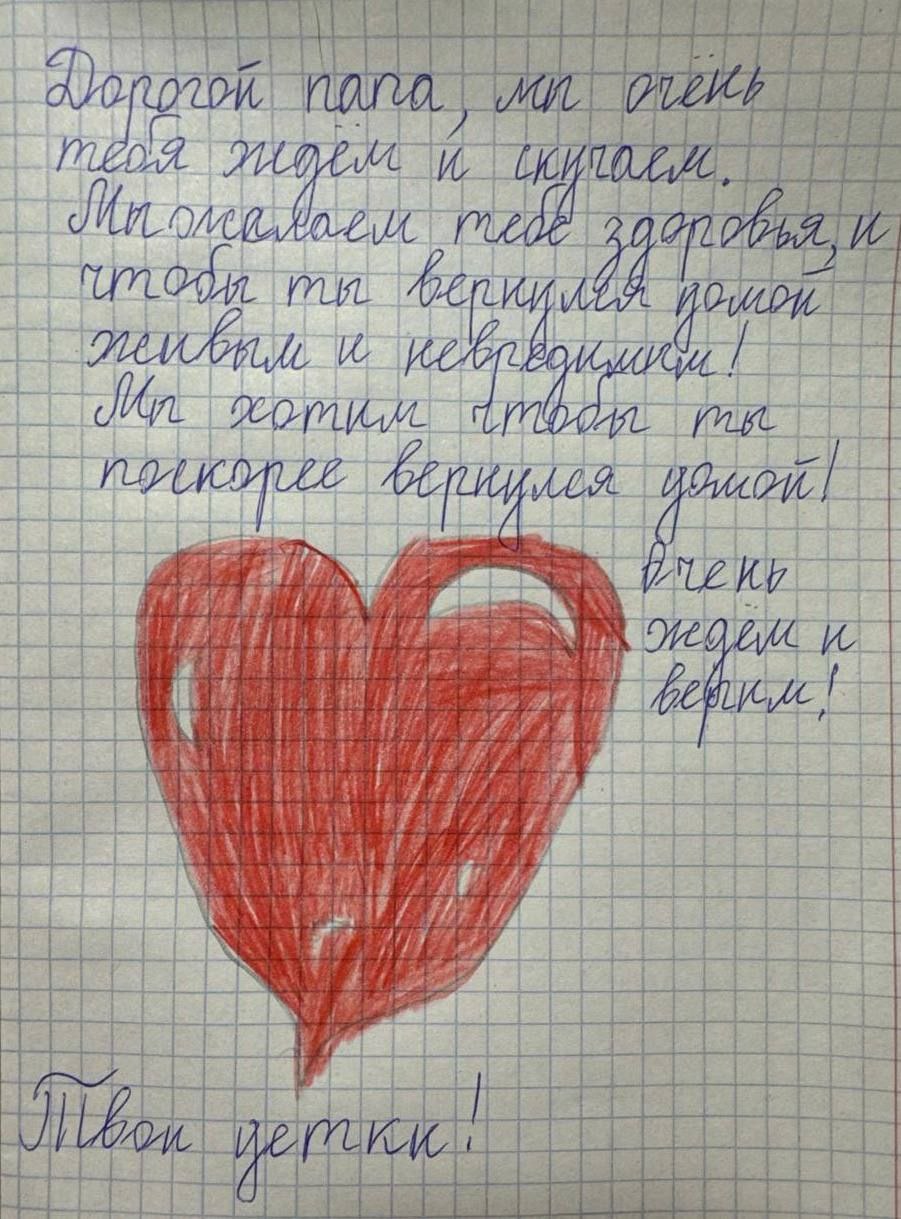 Дорогой папа, мы очёнь
тебя ждём и скучаем.
Мы жалаем тебе здоровья, и
чтобы ты вернулся домой
живым и невредимым!
Мы хотим чтобы ты
поскорее вернулся домой!
Очень
ждём и
верим!
Твои детки!